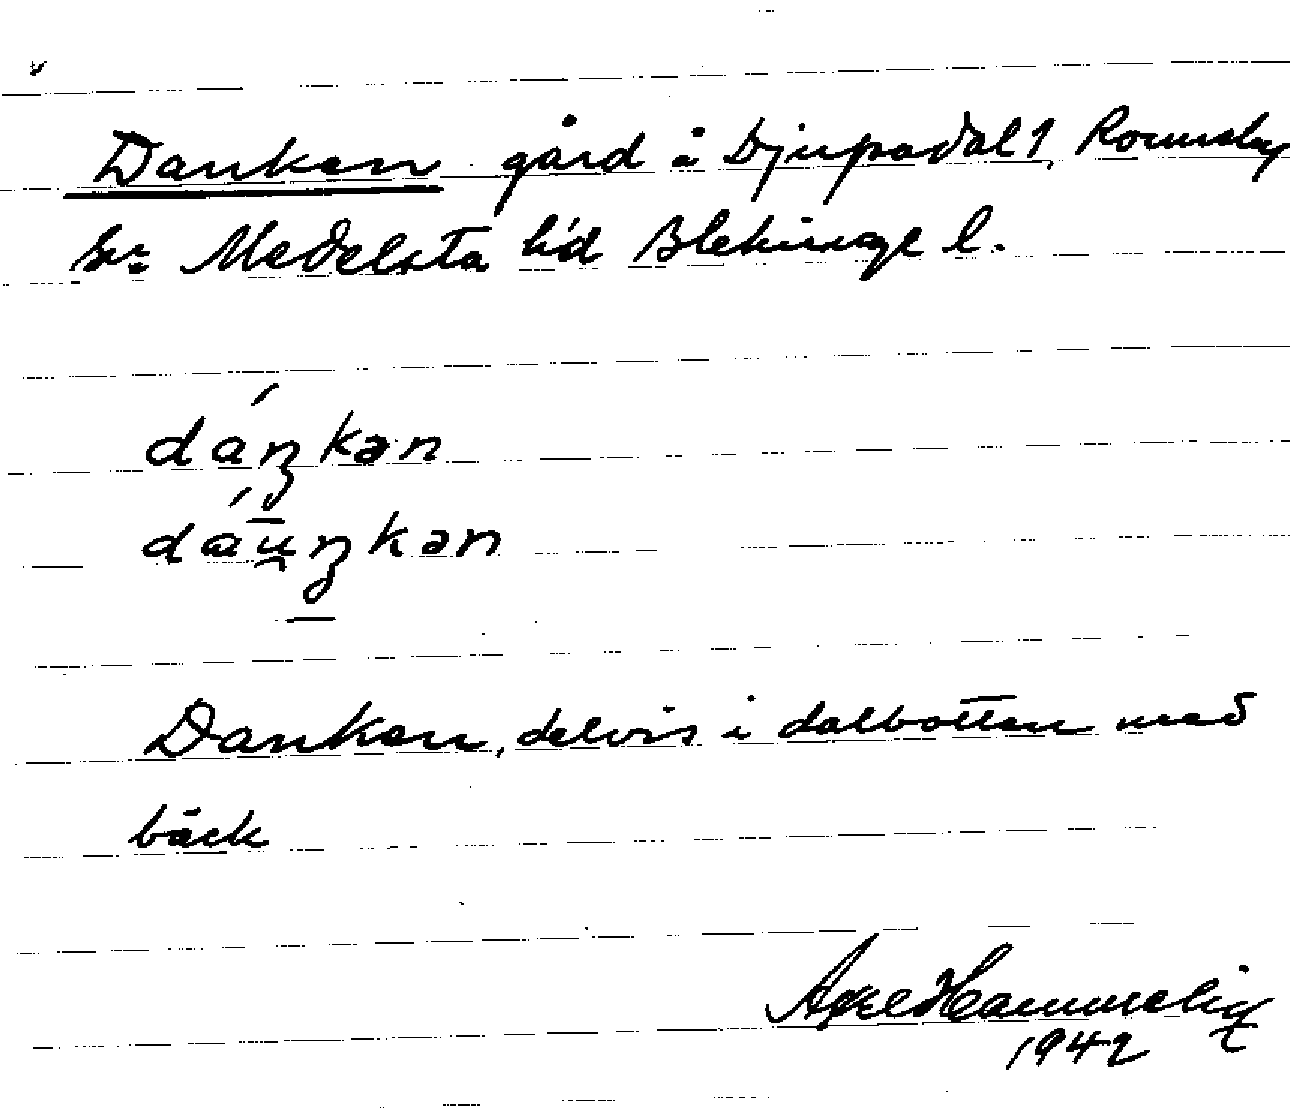 Danken gård å Djupadal 1, Ronneby
Sn: Medelsta hd Blekinge l.
dáŋkən
dáu̯ŋkən
Danken, delvis i dalbotten med
bäck
Axel Hammelin
1942